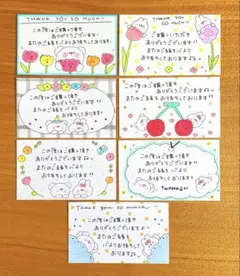 THANK YOU SO MUCH!
この度はご購入頂き
ありがとうございます!
またのご縁を心より
お待ちしております
THANK YOU
SO MUCH
ご購入いただき
ありがとうございます
またのご縁を
お待ちしております
この度はご購入頂き
ありがとうございます!!
またのご縁を心より
お待ちしております
この度はご購入頂き
ありがとうございます♪
またのご縁を
心より
お待ちして
おります
この度はご購入頂き
ありがとうございます♪
またのご縁を
心よりお待ちしております
この度はご購入頂き
ありがとうございます!!
またのご縁を心より
お待ちしております
THANKS!!
Thank you so much
この度はご購入頂き
ありがとうございます!!
またのご縁を
心よりお待ちして
おります